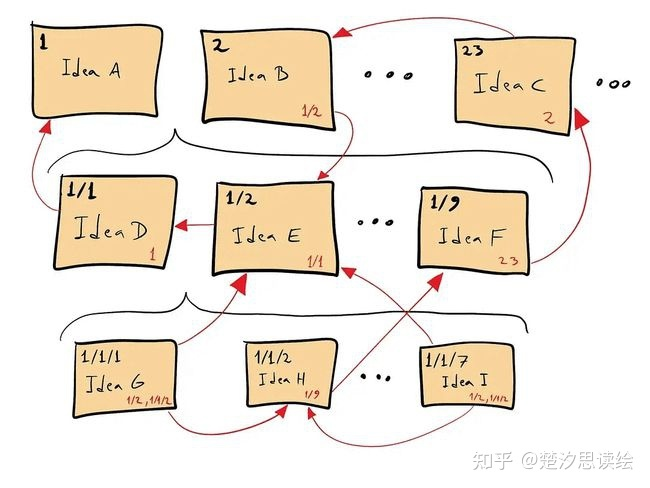 1
Idea A
2
Idea B
1/2
...
23
Idea C
2
...
1/1
Idea D
1
1/2
Idea E
1/1
...
1/9
Idea F
23
1/1/1
Idea G
1/2, 1/1/2
1/1/2
Idea H
1/9
...
1/1/7
Idea I
1/2, 1/1/2
知乎 @楚汐思读绘